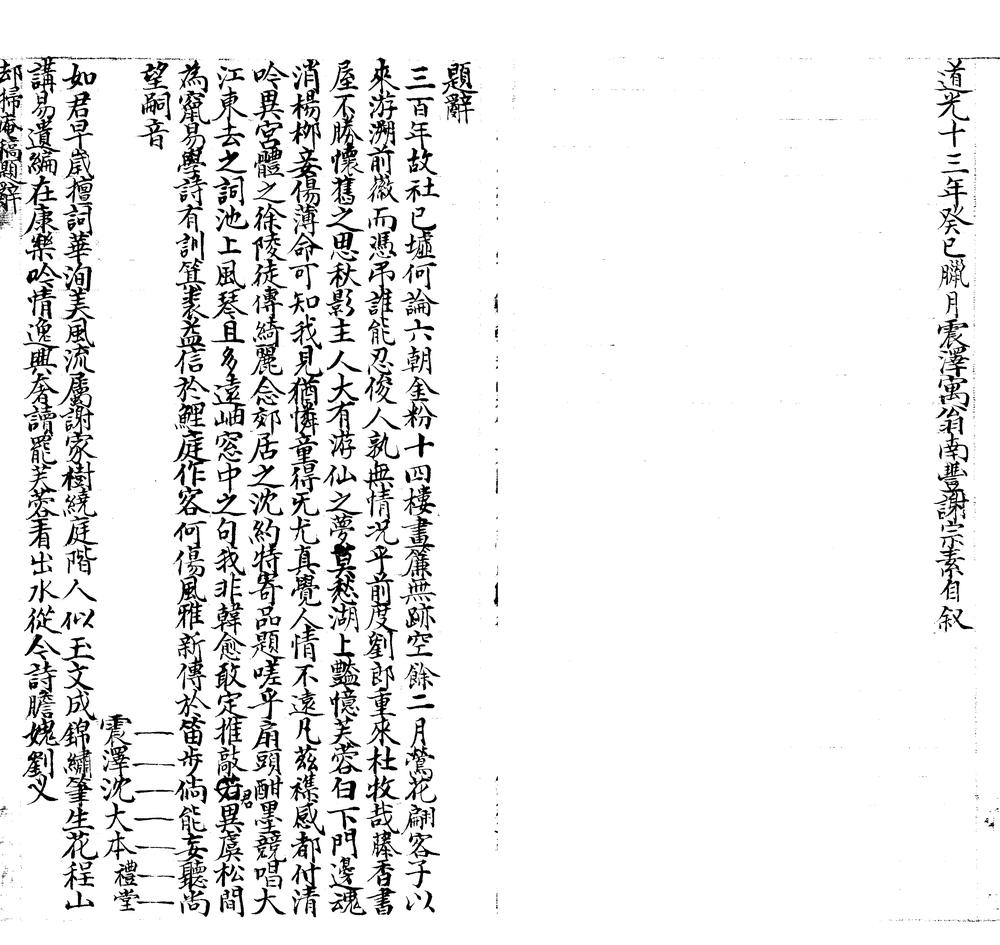 道光十三年癸巳臘月震澤寓翁南豐謝宗素自叙
題辭
三百年故社已墟何論六朝金粉十四樓畫簾無跡空餘二月鶯花翩客子以
來游溯前徽而憑吊誰能忍俊人孰無情况乎前度劉郎重來杜牧哉藤香書
屋不勝懷舊之思秋影主人大有游仙之夢莫愁湖上豔憶芙蓉白下門邊魂
消楊栁妾傷薄命可知我見猶憐童得旡尤真覺人情不遠凡茲襍感都付清
吟異宮體之徐陵徒傳綺麗念郊居之沈約特寄品題嗟乎扇頭酣墨競唱大
江東去之詞池上風琴且多遠岫窓中之句我非韓愈敢定推敲君異虞松間
為竄易學詩有訓箕裘益信於鯉庭作客何傷風雅新傳於笛步倘能妄聽尚
望嗣音
震澤沈大本禮堂
如君早歲擅詞華洵美風流屬謝家樹繞庭階人似玉文成錦繡筆生花程山
講易遺編在康樂吟情逸興奢讀罷芙蓉看出水從今詩膽媿劉叉
却掃庵稿題辭